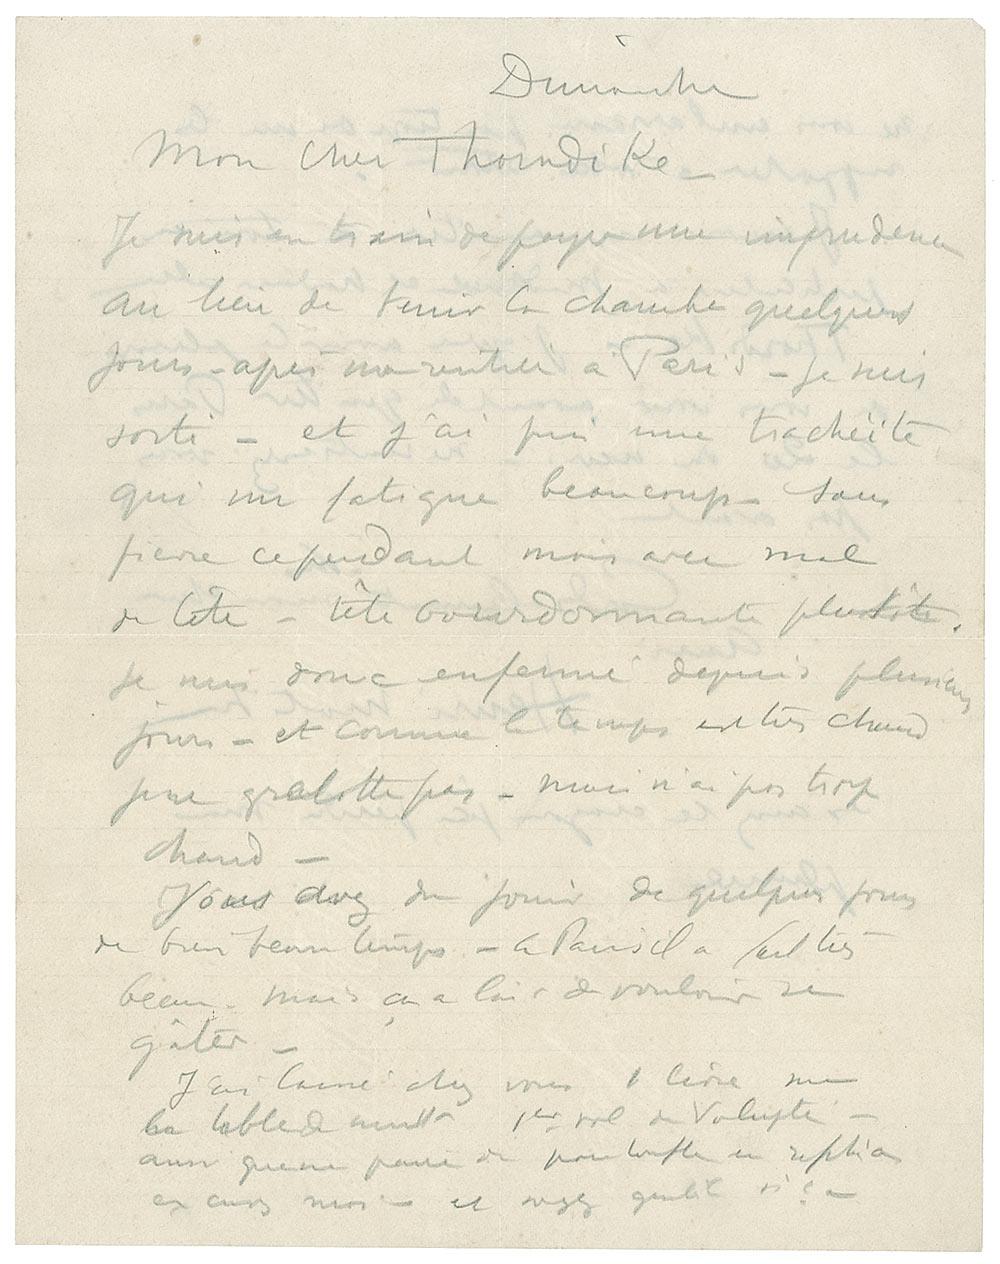 Dimanche
Mon cher Thorndike
Je suis en train de payer une imprudence
au lieu de tenir la chambre quelques
jours - après ma rentrée à Paris - je suis
sorti - et j'ai pris une trachéite
qui me fatigue beaucoup - sans
fièvre cependant mais avec mal
de tête - tête bourdonnante plutôt.
Je suis donc enfermé depuis plusieurs
jours - et comme le temps est très chaud
je ne grelotte pas - mais n'ai pas trop
chaud -
Vous avez du jouir de quelques jours
de bien beau temps - à Paris il a fait très
beau - mais ça a l'air de vouloir se
gâter -
J'ai laissé chez vous 1 livre sur
la table de nuit 1er vol de Volupté -
ainsi qu'une paire de pantoufles en
excusez moi - et soyez gentil